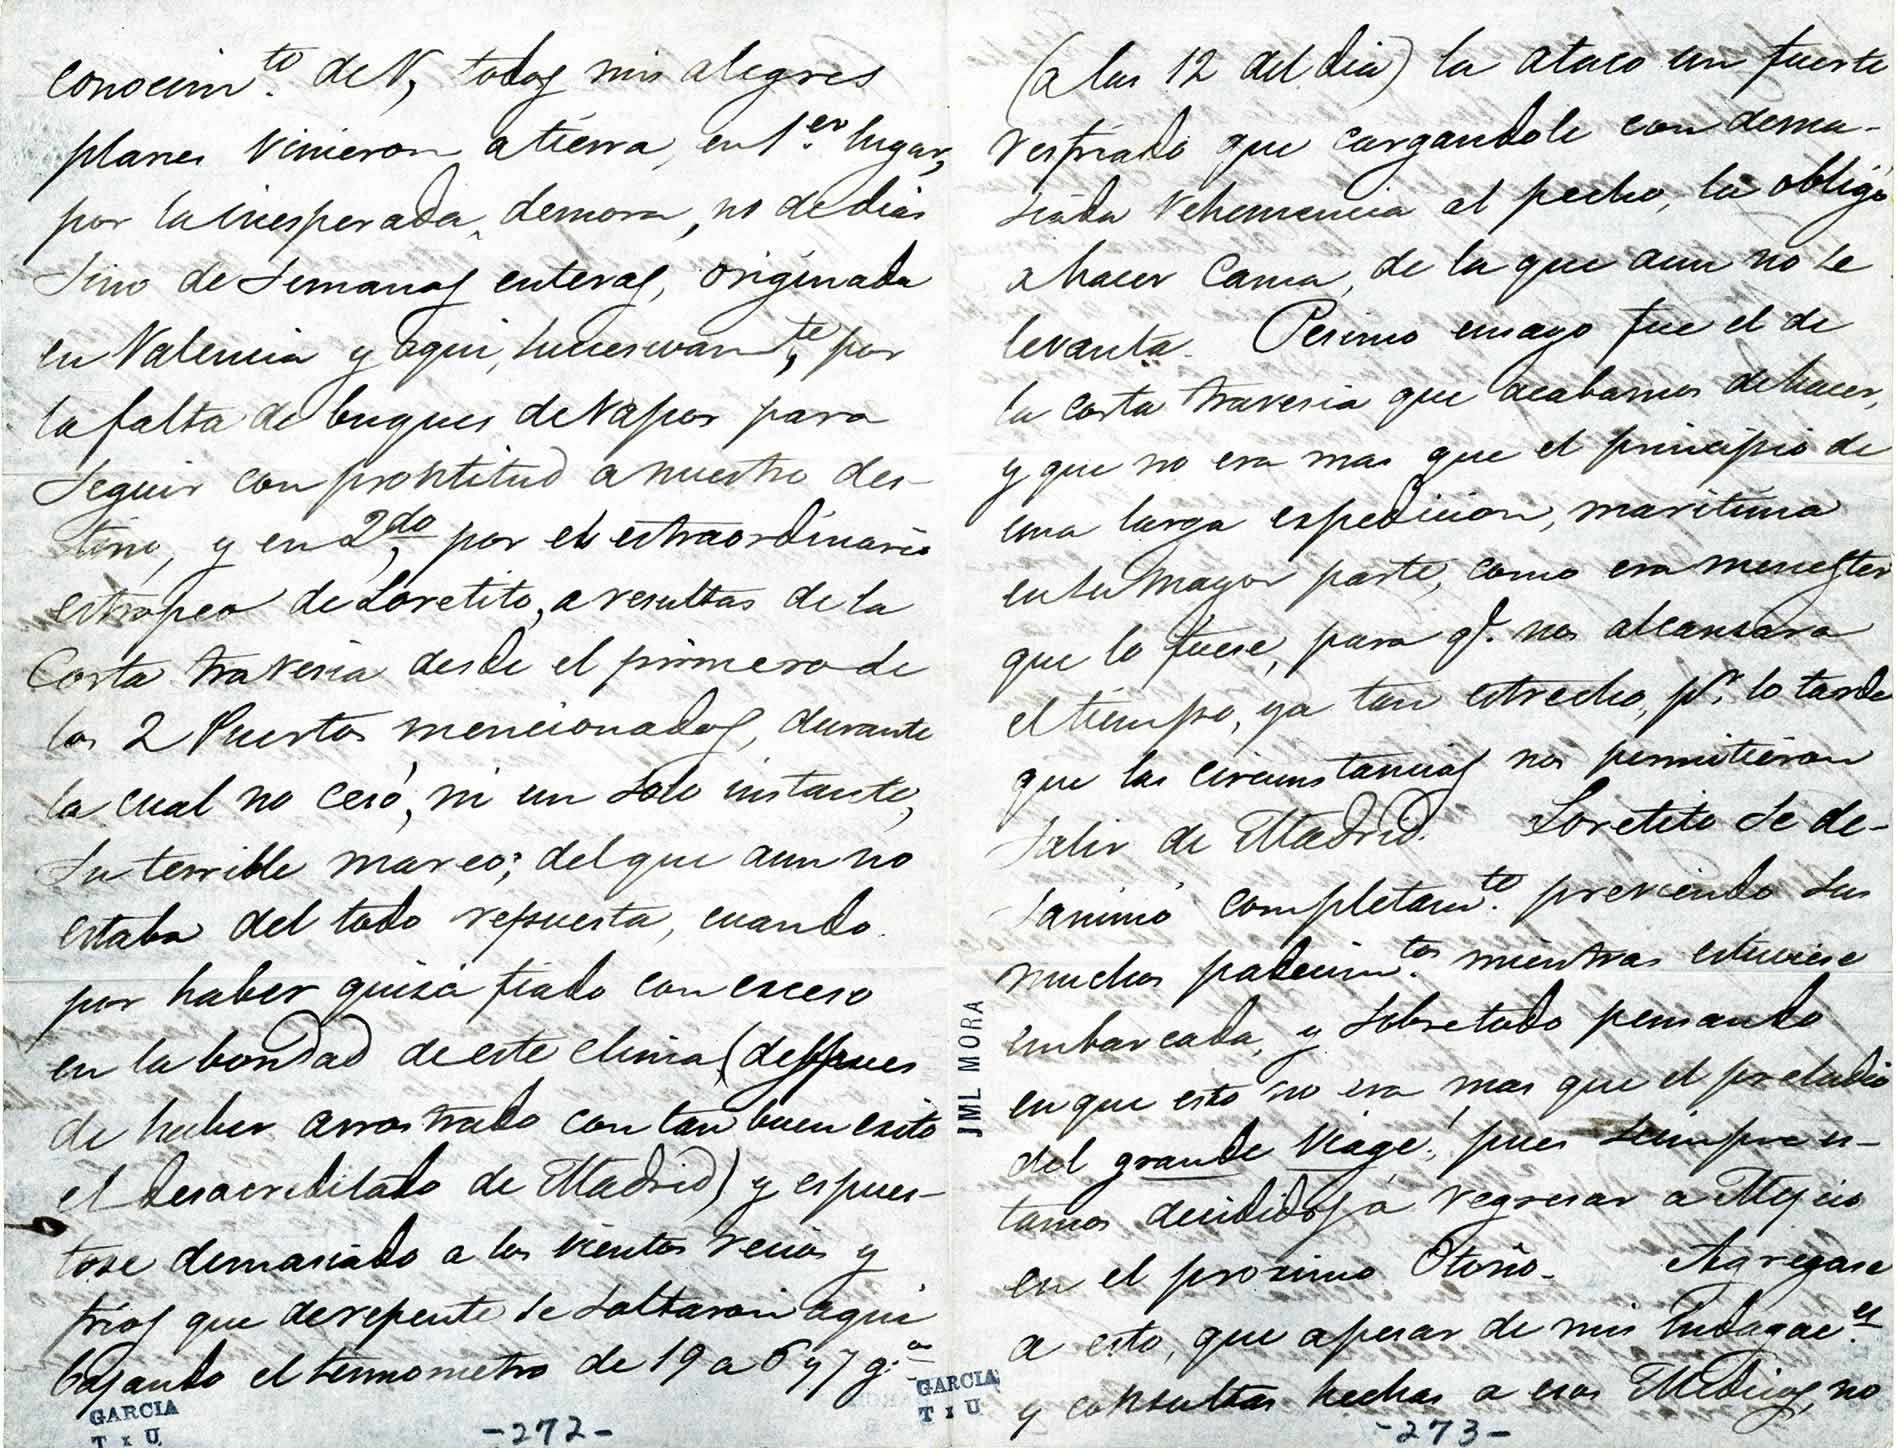 conocim.to de V, todos mis alegres
planes vinieron a tierra, en 1.er lugar,
por la inesperada demora, no de dias
sino de semanas enteras, originada
en Valencia y aqui, sucesivam.te, por
la falta de buques de vapor para
seguir con prontitud a nuestro des-
tino, y en 2.do, por el estraordinario
estropeo de Loretito, a resultas de la
Corta travesia desde el primero de
los 2 Puertos mencionados, durante
la cual no cesó, ni un solo instante,
su terrible mareo; del que aun no
estaba del todo repuesta, cuando
por haber quizá fiado con exceso
en la bondad de este clima, (despues
de haber arrostrado con tan buen exito
el desacreditado de Madrid) y espues-
tose demasiado a los vientos recios y
frios que derepente se soltaron aqui
bajando el termometro de 19 a 6 y 7 g.s
GARCIA
T x U
-272-
GARCIA
T x U
JML MORA
(a las 12 del dia) la ataco un fuerte
resfriado que cargandole con dema-
siada vehemencia al pecho, la obligó
a hacer Cama, de la que aun no se
levanta. Pesimo ensayo fue el de
la corta travesia que acabamos de hacer,
y que no era mas que el principio de
una larga espedicion, maritima
en su mayor parte, como era menester
que lo fuese, para q.e nos alcanzara
el tiempo, ya tan estrecho, p.r lo tarde
que las circunstancias nos permitieron
salir de Madrid. Loretito se de-
sanimó completam.te previendo sus
muchos padecim.tos mientras estuviese
embarcada, y sobretodo pensando
en que esto no era mas que el preludio
del grande viage!, pues siempre es-
tamos decididos á regresar a Mejico
en el procsimo Otoño. Agregase
a esto, que apesar de mis indagac.es
y consultas hechas a esos Medicos, no
-273-